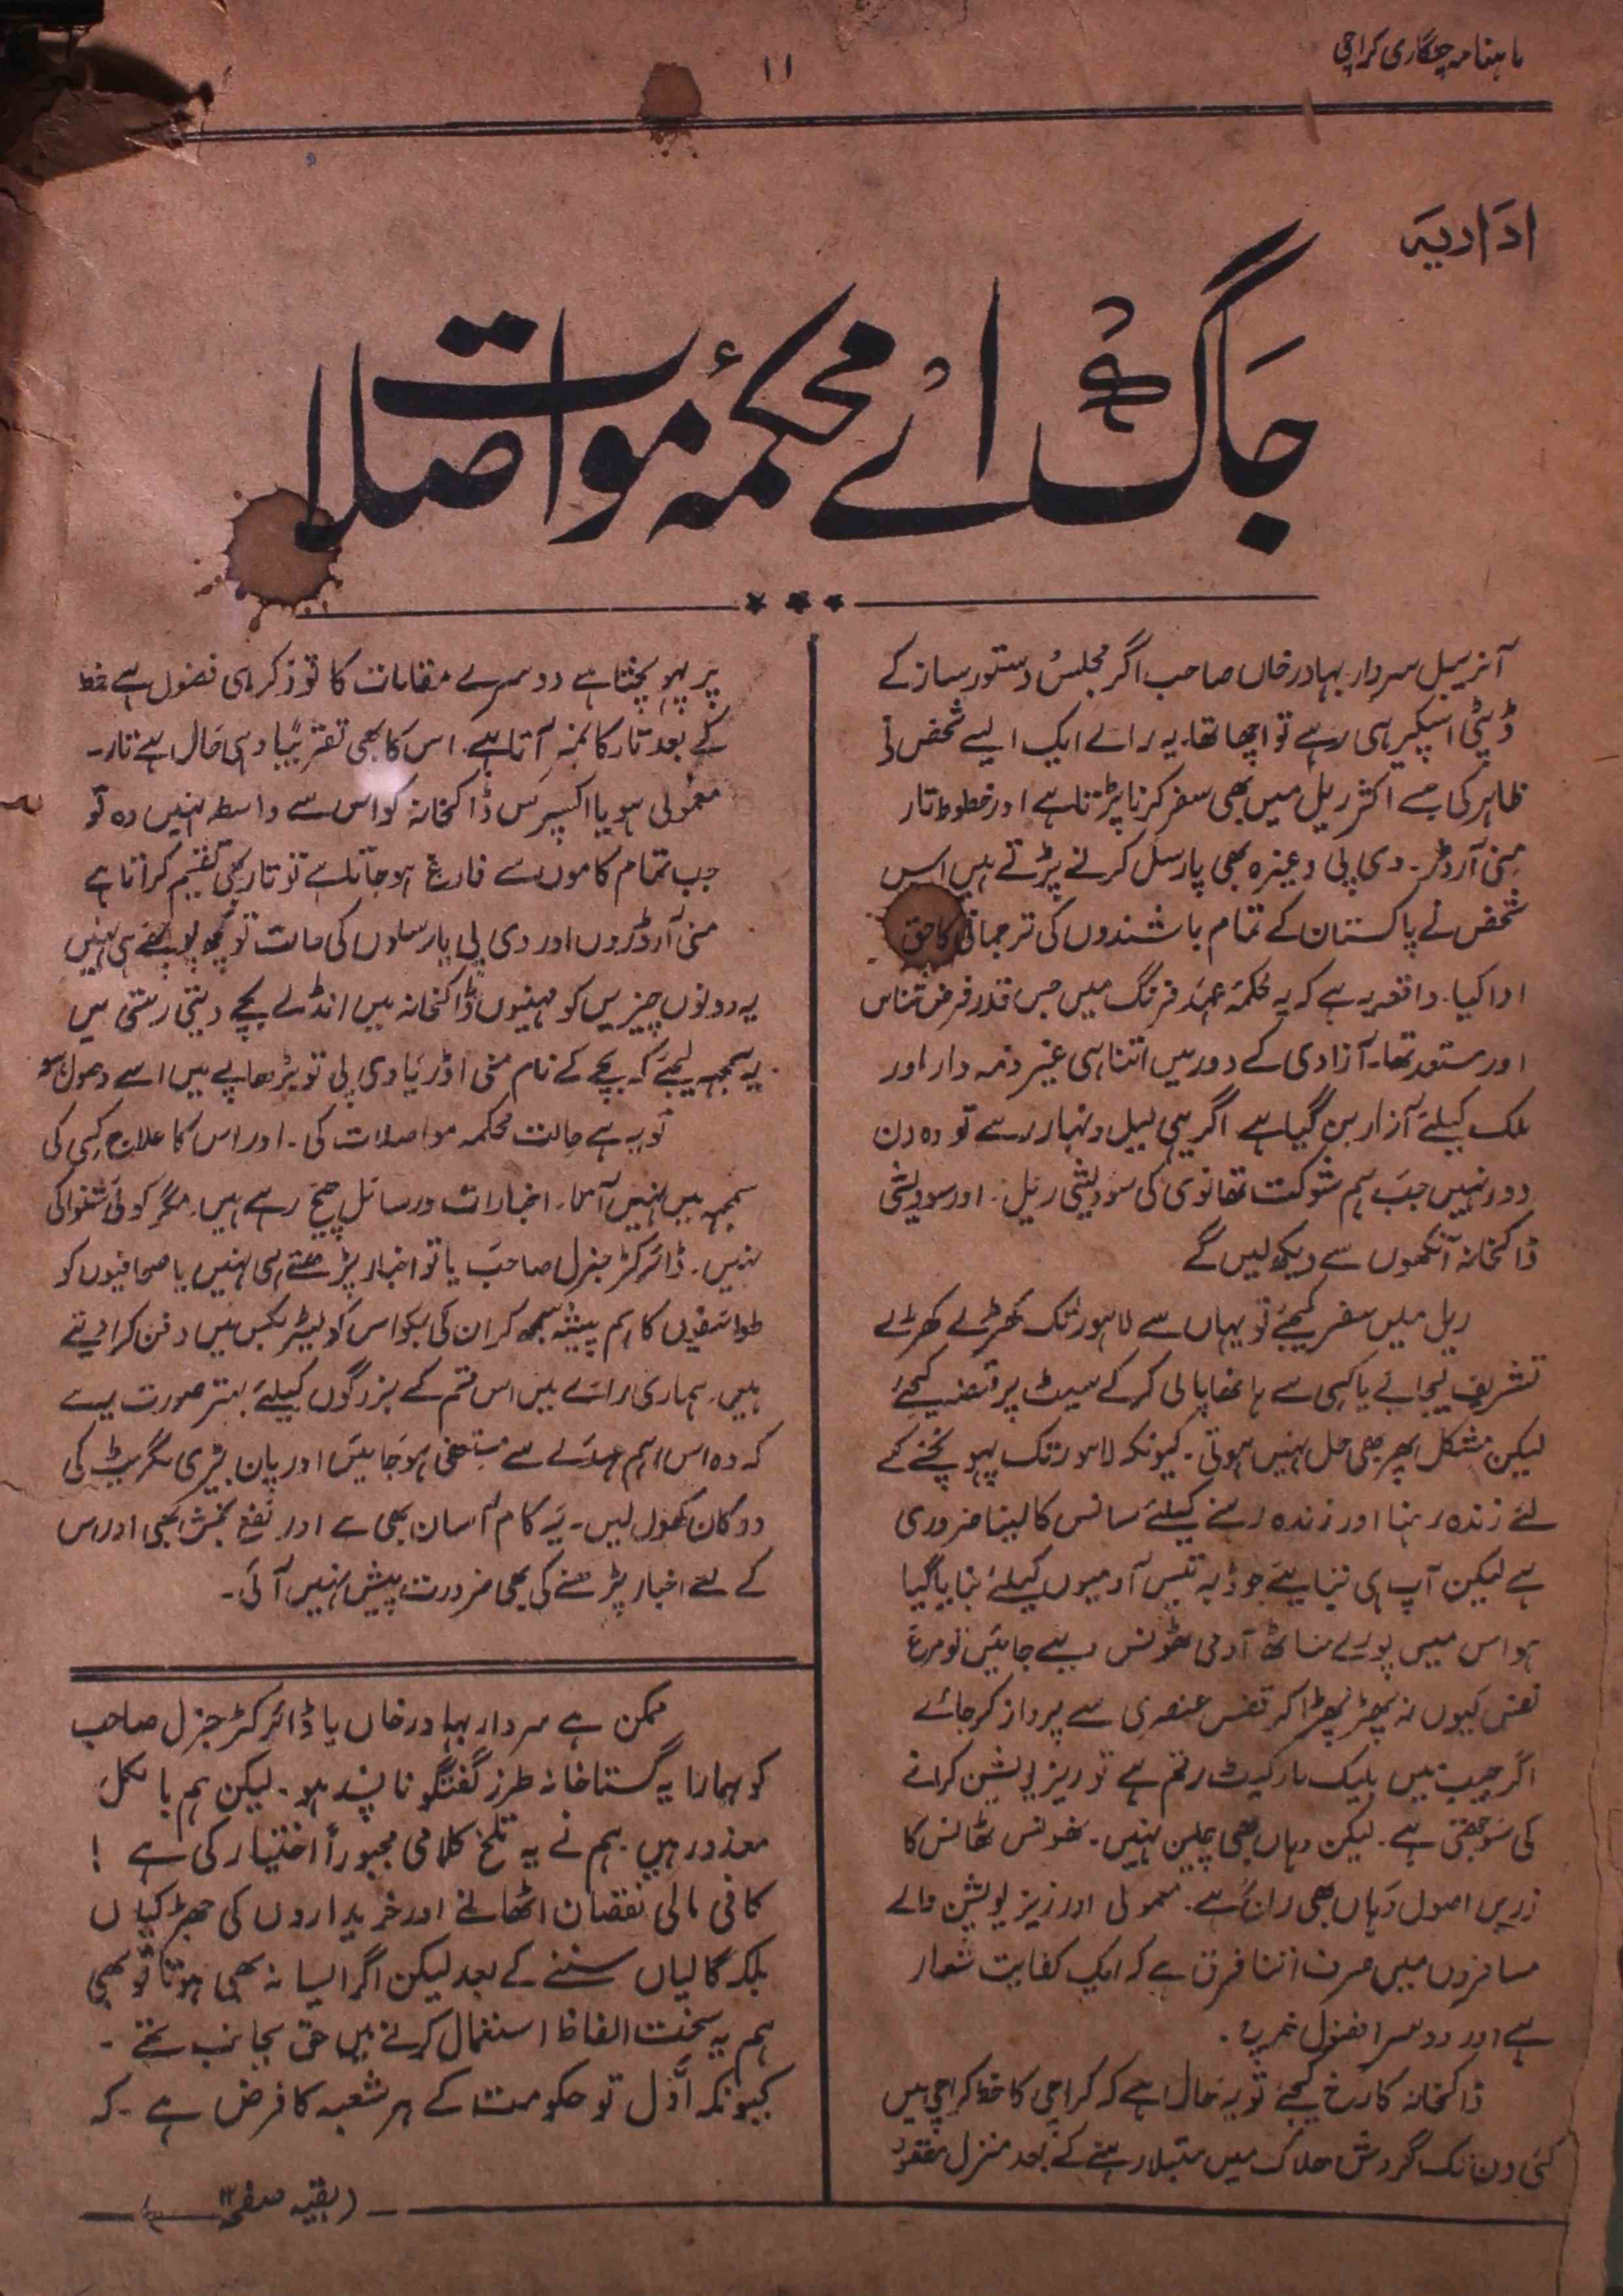 ماہنامہ چنگاری کراچی
۱۱
اداریہ
جاگ اے محکمۂ مواصلات
آنریبل سردار بہادر خاں صاحب اگر مجلس دستور ساز کے
ڈپٹی اسپیکر ہی رہتے تو اچھا تھا۔ یہ رائے ایک ایسے شخص نے
ظاہر کی جسے اکثر ریل میں بھی سفر کرنا پڑتا ہے اور خطوط تار
منی آرڈر۔ وی پی وغیرہ بھی پارسل کرنے پڑتے ہیں اس
شخص نے پاکستان کے تمام باشندوں کی ترجمانی کا حق
ادا کیا۔ واقعہ یہ ہے کہ یہ محکمہ عہد فرنگ میں جس قدر فرض شناس
اور مستعد تھا۔ آزادی کے دور میں اتنا ہی غیر ذمہ دار اور
ملک کیلئے آزار بن گیا ہے اگر یہی لیل و نہار رہے تو وہ دن
دور نہیں جب ہم شوکت تھانوی کی سودیشی ریل۔ اور سودیشی
ڈاکخانہ آنکھوں سے دیکھ لیں گے
ریل میں سفر کیجئے تو یہاں سے لاہور تک کھڑے کھڑے
تشریف لیجائے یا کسی سے ہاتھا پائی کر کے سیٹ پر قبضہ کیجئے
لیکن مشکل پھر بھی حل نہیں ہوتی۔ کیونکہ لاہور تک پہونچنے کے
لئے زندہ رہنا اور زندہ رہنے کیلئے سانس کا لینا ضروری
ہے لیکن آپ ہی بتایئے جو ڈبہ تیس آدمیوں کیلئے بنایا گیا
ہو اس میں پورے ساٹھ آدمی ٹھونس دیے جائیں تو مرغ
نفس کیوں نہ پھڑپھڑا کر قفس عنصری سے پرواز کر جائے
اگر جیب میں بلیک مارکیٹ رقم ہے تو ریزرویشن کرانے
کی سوجھتی ہے۔ لیکن وہاں بھی چین نہیں۔ ٹھونس ٹھانس کا
زریں اصول وہاں بھی رائج ہے۔ معمولی اور ریزرویشن والے
مسافروں میں صرف اتنا فرق ہے کہ ایک کفایت شعار
ہے اور دوسرا فضول خرچ۔
ڈاکخانہ کا رخ کیجئے تو یہ حال ہے کہ کراچی کا خط کراچی میں
کئی دن تک گردش افلاک میں مبتلا رہنے کے بعد منزل مقصود
پر پہونچتا ہے دوسرے مقامات کا تو ذکر ہی فضول ہے خط
کے بعد تار کا نمبر آتا ہے۔ اس کا بھی تقریباً وہی حال ہے تار۔
معمولی ہو یا اکسپرس ڈاکخانہ کو اس سے واسطہ نہیں وہ تو
جب تمام کاموں سے فارغ ہو جاتا ہے تو تار بھی تقسیم کراتا ہے
منی آرڈروں اور وی پی پارسلوں کی حالت تو کچھ پوچھئے ہی نہیں
یہ دونوں چیزیں تو مہینوں ڈاکخانہ میں انڈے بچے دیتی رہتی ہیں
یہ سمجھ لیجئے کہ بچے کے نام منی آڈر یا وی پی تو بڑھاپے میں اسے وصول ہو
تو یہ ہے حالت محکمہ مواصلات کی۔ اور اس کا علاج کسی کی
سمجھ میں نہیں آتا۔ اخبارات و رسائل چیخ رہے ہیں۔ مگر کوئی شنوائی
نہیں۔ ڈائرکٹر جنرل صاحب یا تو اخبار پڑھتے ہی نہیں یا صحافیوں کو
طوائفوں کا ہم پیشہ سمجھ کر ان کی بکواس کو لیٹر بکس میں دفن کرا دیتے
ہیں۔ ہماری رائے میں اس قسم کے بزرگوں کیلئے بہتر صورت یہ ہے
کہ وہ اس اہم عہدے سے مستعفی ہو جائیں اور پان بیڑی سگریٹ کی
دوکان کھول لیں۔ یہ کام آسان بھی ہے اور نفع بخش بھی اور اس
کے لئے اخبار پڑھنے کی بھی ضرورت پیش نہیں آتی۔
ممکن ہے سردار بہادر خاں یا ڈائرکٹر جنرل صاحب
کو ہمارا یہ گستاخانہ طرز گفتگو ناپسند ہو۔ لیکن ہم بالکل
معذور ہیں۔ ہم نے یہ تلخ کلامی مجبوراً اختیار کی ہے !
کافی مالی نقصان اٹھانے اور خریداروں کی جھڑکیاں
بلکہ گالیاں سننے کے بعد لیکن اگر ایسا نہ بھی ہوتا تو بھی
ہم یہ سخت الفاظ استعمال کرنے میں حق بجانب تھے۔
کیونکہ اول تو حکومت کے ہر شعبہ کا فرض ہے۔ کہ
(بقیہ صفحہ ۱۲)